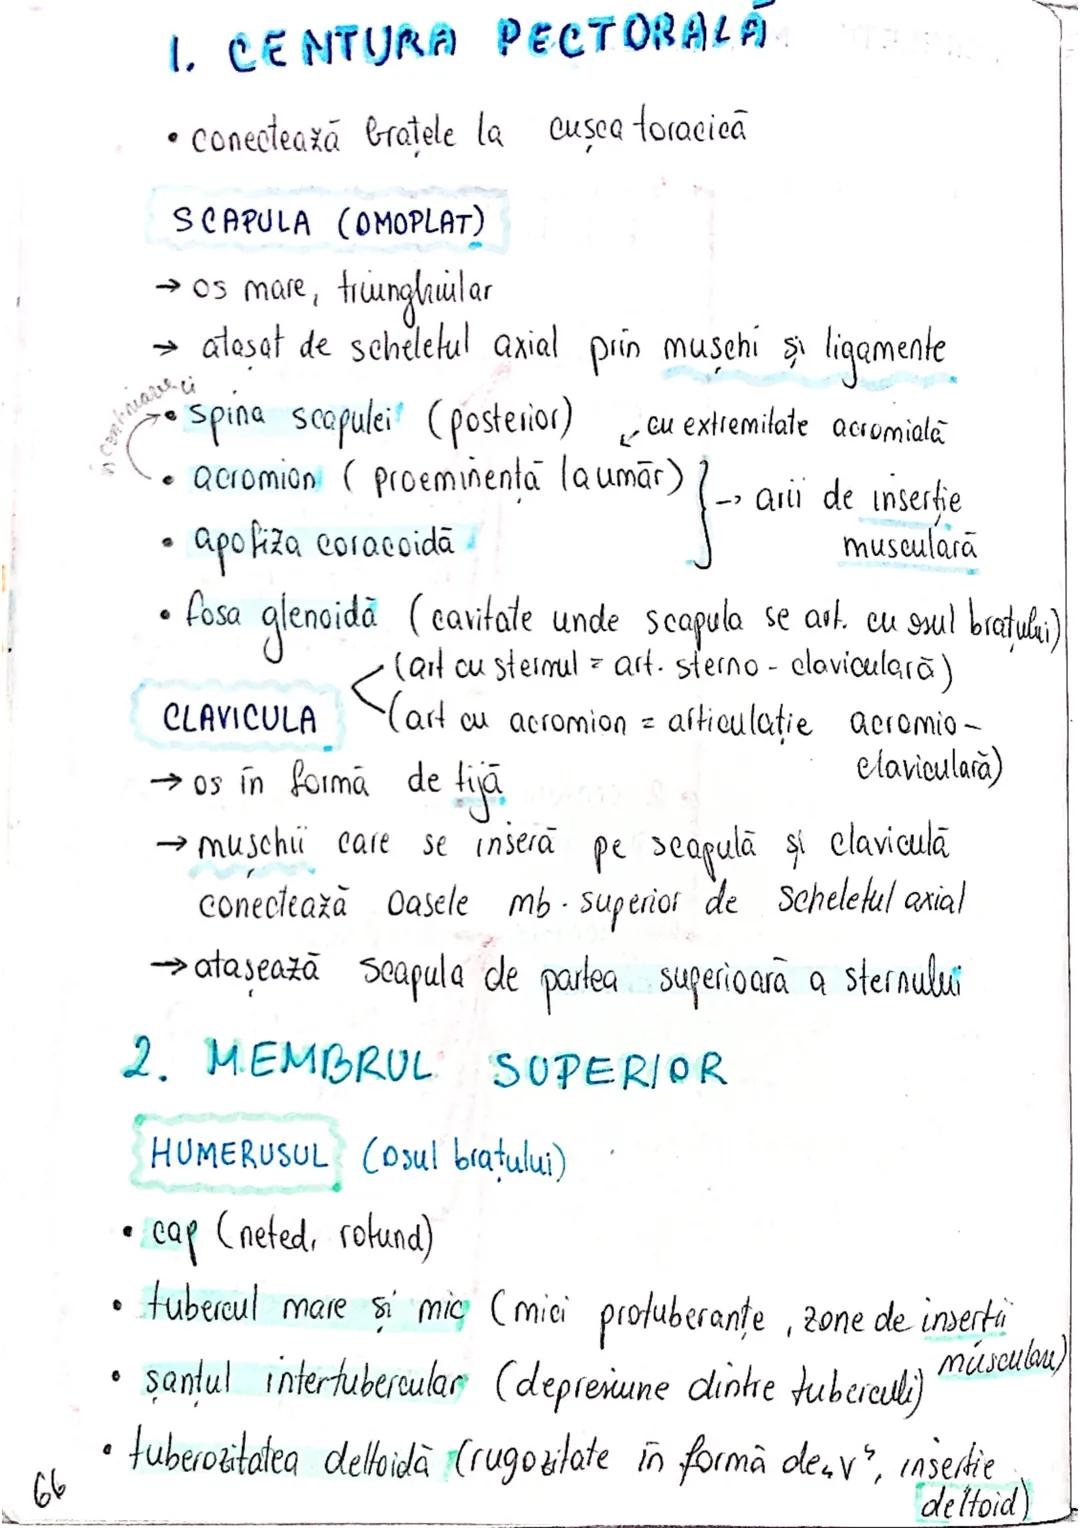 1. CENTURA PECTORALĂ
• conectează brațele la cușca toracică
SCAPULA (OMOPLAT)
→ os mare, triunghiular
→ atașat de scheletul axial prin mușchi și ligamente
în continuare ei
• spina scapulei (posterior)
cu extremitate acromială
• acromion (proeminență la umăr)
→ arii de inserție
• apofiza coracoidă
musculară
• fosa glenoidă (cavitate unde scapula se art. cu osul brațului)
(art cu sternul = art. sterno - claviculară)
CLAVICULA
(art cu acromion = articulație acromio-
claviculară)
→ os în formă de tijă
→ mușchii care se inseră pe scapulă și claviculă
conectează oasele mb. superior de scheletul axial
→ atașează scapula de partea superioară a sternului
2. MEMBRUL SUPERIOR
HUMERUSUL (osul brațului)
• cap (neted, rotund)
• tubercul mare și mic (mici protuberanțe, zone de inserții
musculare)
• șanțul intertubercular (depresiune dintre tuberculi)
• tuberozitatea deltoidă (rugozitate în formă de „V”, inserție
deltoid)
66